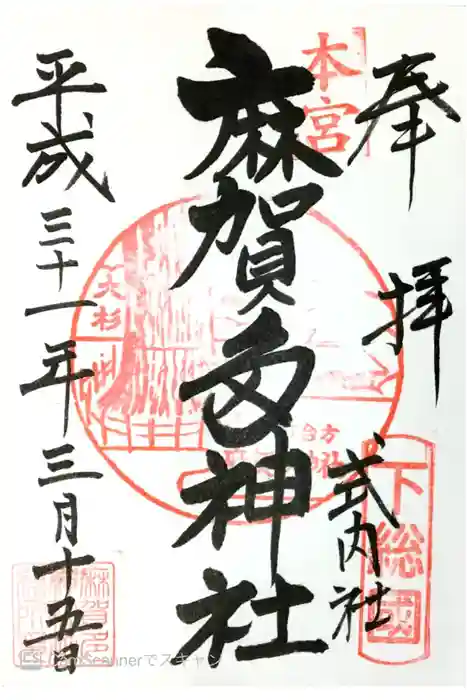 奉拝
式内社
下総國
本宮
麻賀多神社
大杉
台方
平成三十一年三月十五日
CamScannerでスキャン